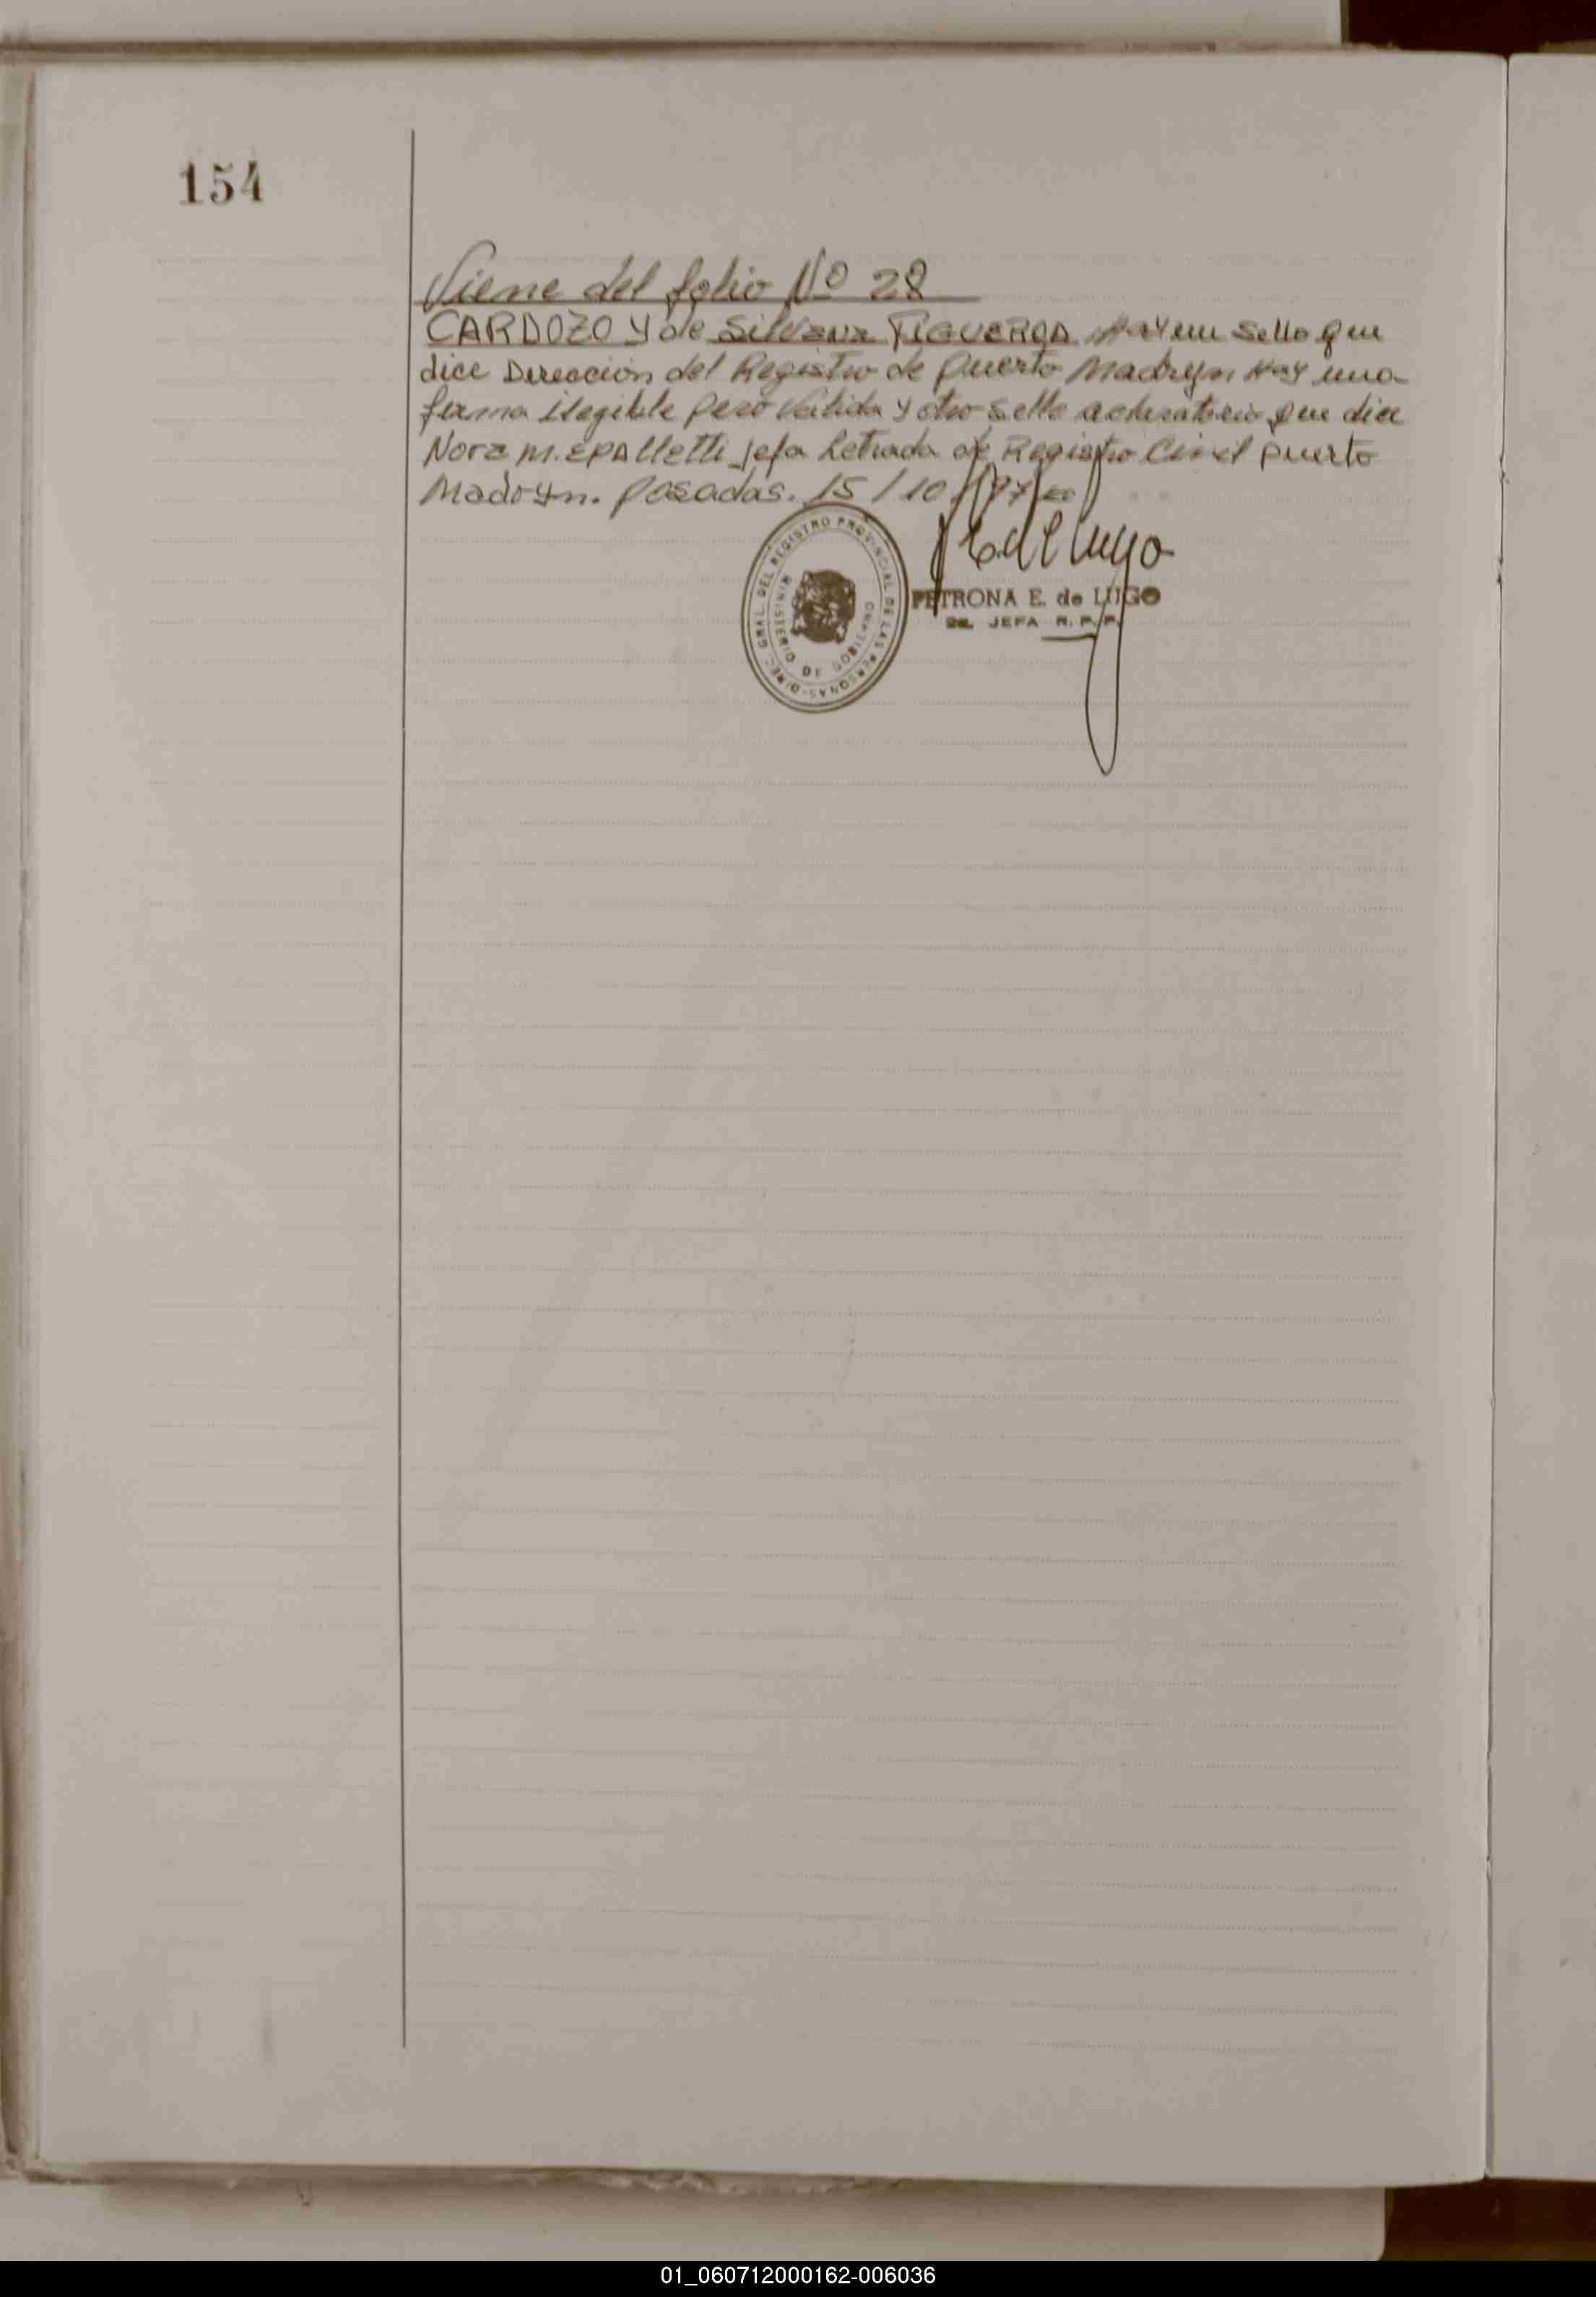 154
Viene del folio Nº 28
CARDOZO y de Silvana FIGUEROA Hay un Sello que
dice Dirección del Registro de Puerto Madryn Hay una
firma ilegible pero Válida y otro Sello aclaratorio que dice
Nora M. Jefa Letrada de Registro Civil Puerto
Madryn. Posadas. 15/10/97
PETRONA E. de LUGO
2a. JEFA R. P. P.
DIREC. GRAL. DEL REGISTRO PROVINCIAL DE LAS PERSONAS
MINISTERIO DE GOBIERNO
01_060712000162-006036